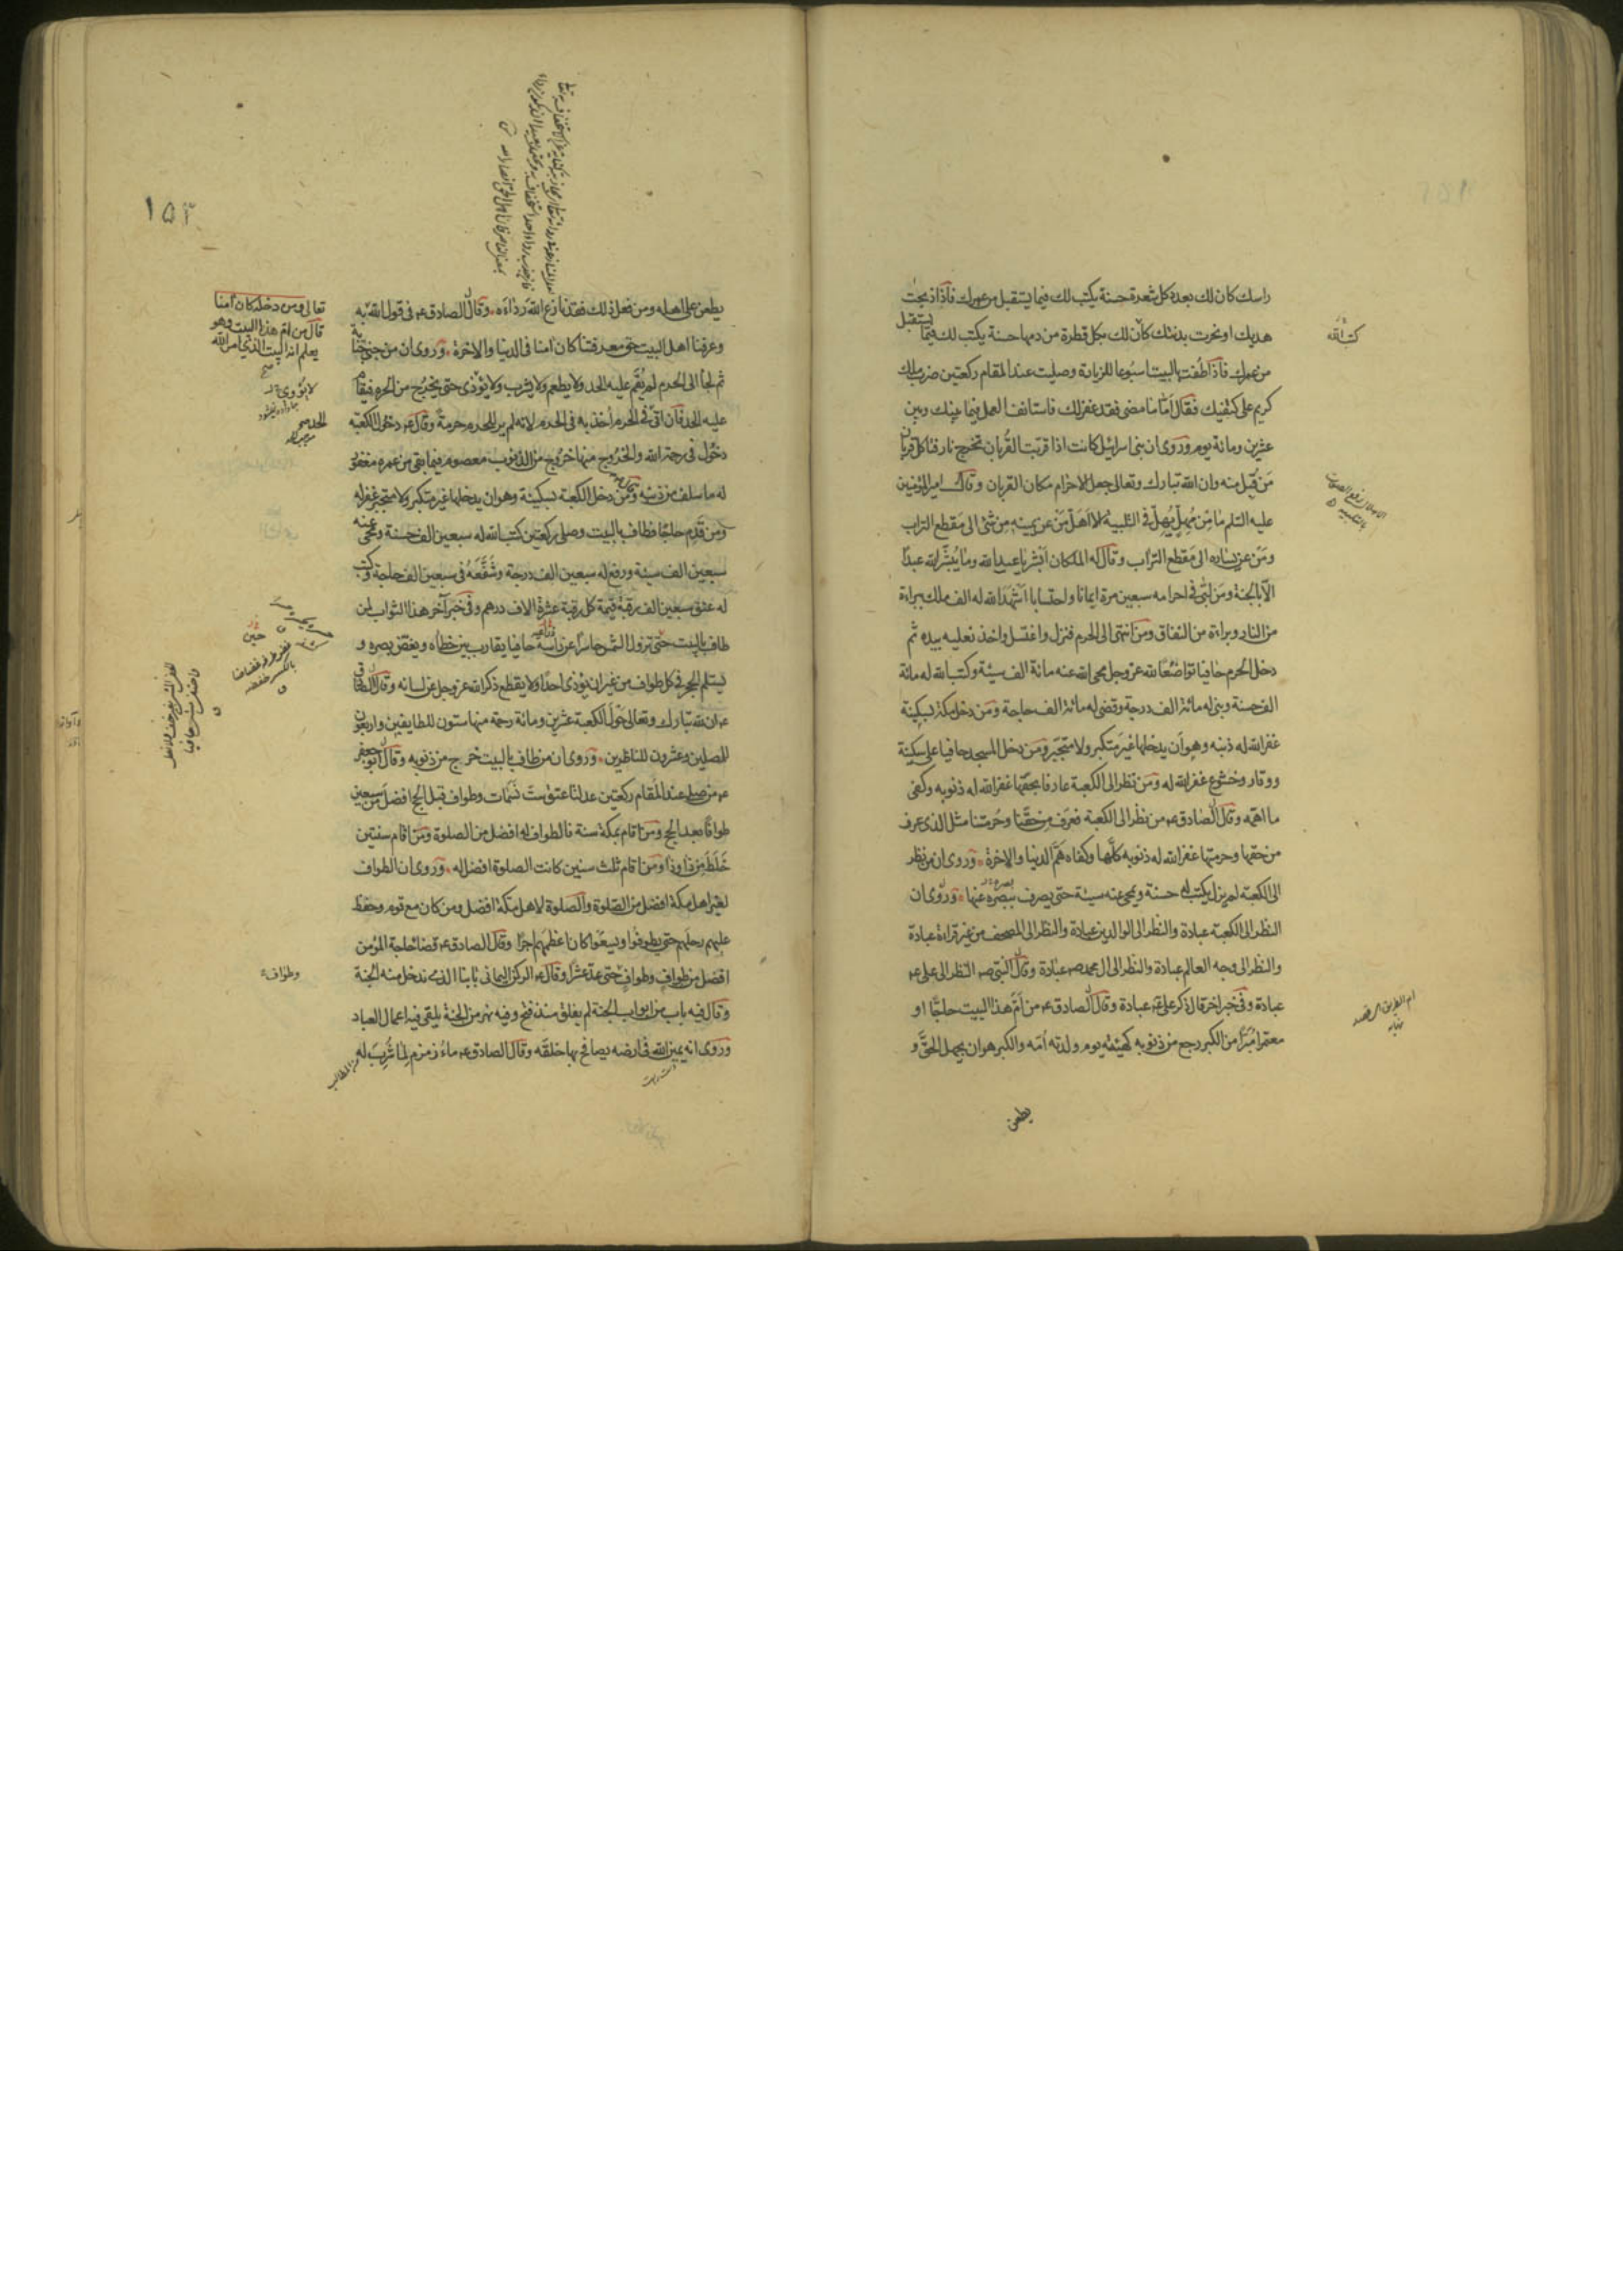 راسك كان لك بعدد كل شعرة حسنة يكتب لك فيما يستقبل من عمرك فاذا ذبحت
هديك او نحرت بدنتك كان لك بكل قطرة من دمها حسنة يكتب لك فيما يستقبل
من عمرك فاذا طفت بالبيت اسبوعا للزيارة وصليت عند المقام ركعتين ضرب ملك
كريم على كتفيك فقال اما ما مضى فقد غفر لك فاستانف العمل فيما بينك وبين
عشرين ومائة يوم وروى ان بنى اسرائيل كانت اذا قربت القربان تخرج نار فتاكل قربان
من قبل منه وان الله تبارك وتعالى جعل الاحرام مكان القربان وقال امير المؤمنين
عليه السلم ما من مهل يهل فى التلبية الا اهل من عن يمينه من شئ الى مقطع التراب
ومن عن يساره الى مقطع التراب وقال له الملكان ابشر يا عبد الله وما يبشر الله عبدا
الا بالجنة ومن لبى فى احرامه سبعين مرة ايمانا واحتسابا اشهد الله له الف ملك ببراءة
من النار وبراءة من النفاق ومن انتهى الى الحرم فنزل واغتسل واخذ نعليه بيده ثم
دخل الحرم حافيا تواضعا لله عز وجل محى الله عنه مائة الف سيئة وكتب الله له مائة
الف حسنة وبنى له مائة الف درجة وقضى له مائة الف حاجة ومن دخل مكة بسكينة
غفر الله له ذنبه وهو ان يدخلها غير متكبر ولا متجبر ومن دخل المسجد حافيا على سكينة
ووقار وخشوع غفر الله له ومن نظر الى الكعبة عارفا بحقها غفر الله له ذنوبه وكفى
ما اهمه وقال الصادق ع من نظر الى الكعبة فعرف من حقنا وحرمتنا مثل الذى عرف
من حقها وحرمتها غفر الله له ذنوبه كلها وكفاه هم الدنيا والاخرة وروى ان من نظر
الى الكعبة لم يزل يكتب له حسنة ويمحى عنه سيئة حتى يصرف ببصره عنها وروى ان
النظر الى الكعبة عبادة والنظر الى الوالدين عبادة والنظر الى المصحف من غير قراءة عبادة
والنظر الى وجه العالم عبادة والنظر الى ال محمد ص عبادة وقال النبى ص النظر الى على ع
عبادة وفى خبر اخر قال ذكر على ع عبادة وقال الصادق ع من ام هذا البيت حاجا او
معتمرا مبرا من الكبر رجع من ذنوبه كهيئته يوم ولدته امه والكبر هو ان يجهل الحق و
يطعن
كتب الله
١٥٣
يطعن على اهله ومن فعل ذلك فقد نازع الله رداءه وقال الصادق ع فى قول الله
وعرفنا اهل البيت حق معرفتنا كان امنا فى الدنيا والاخرة وروى ان من جنى جناية
ثم لجأ الى الحرم لم يقم عليه الحد ولا يطعم ولا يشرب ولا يؤذى حتى يخرج من الحرم فيقام
عليه الحد فان اتى فى الحرم اخذ به فى الحرم لانه لم ير للحرم حرمة وقال ع دخول الكعبة
دخول فى رحمة الله والخروج منها خروج من الذنوب معصوم فيما بقى من عمره مغفور
له ما سلف من ذنبه ومن دخل الكعبة بسكينة وهو ان يدخلها غير متكبر ولا متجبر غفر له
ومن قدم حاجا فطاف بالبيت وصلى ركعتين كتب الله له سبعين الف حسنة ومحى عنه
سبعين الف سيئة ورفع له سبعين الف درجة وشفعه فى سبعين الف حاجة وكتب
له عتق سبعين الف رقبة قيمة كل رقبة عشرة الاف درهم وفى خبر آخر هذا الثواب لمن
طاف بالبيت حتى تزول الشمس حاسرا عن رأسه حافيا يقارب بين خطاه ويغض بصره و
يستلم الحجر فى كل طواف من غير ان يؤذى احدا ولا يقطع ذكر الله عز وجل عن لسانه وقال الصادق
ع ان لله تبارك وتعالى حول الكعبة عشرين ومائة رحمة منها ستون للطايفين واربعون
للمصلين وعشرون للناظرين وروى ان من طاف بالبيت خرج من ذنوبه وقال ابو جعفر
ع من صلى عند المقام ركعتين عدلتا عتق ست نسمات وطواف قبل الحج افضل من سبعين
طوافا بعد الحج ومن اقام بمكة سنة فالطواف له افضل من الصلوة ومن اقام سنتين
خلط من ذا وذا ومن اقام ثلث سنين كانت الصلوة افضل له وروى ان الطواف
لغير اهل مكة افضل من الصلوة والصلوة لاهل مكة افضل ومن كان مع قوم وحفظ
عليهم رحلهم حتى يطوفوا ويسعوا كان اعظمهم اجرا وقال الصادق ع قضاء حاجة المؤمن
افضل من طواف وطواف حتى عد عشرا وقال ع الركن اليمانى بابنا الذى ندخل منه الجنة
وقال فيه باب من ابواب الجنة لم يغلق منذ فتح وفيه نهر من الجنة يلقى فيه اعمال العباد
وروى انه يمين الله فى ارضه يصافح بها خلقه وقال الصادق ع ماء زمزم لما شرب له
تعالى ومن دخله كان آمنا
قال من ام هذا البيت وهو
يعلم انه البيت الذى امر الله
وطواف